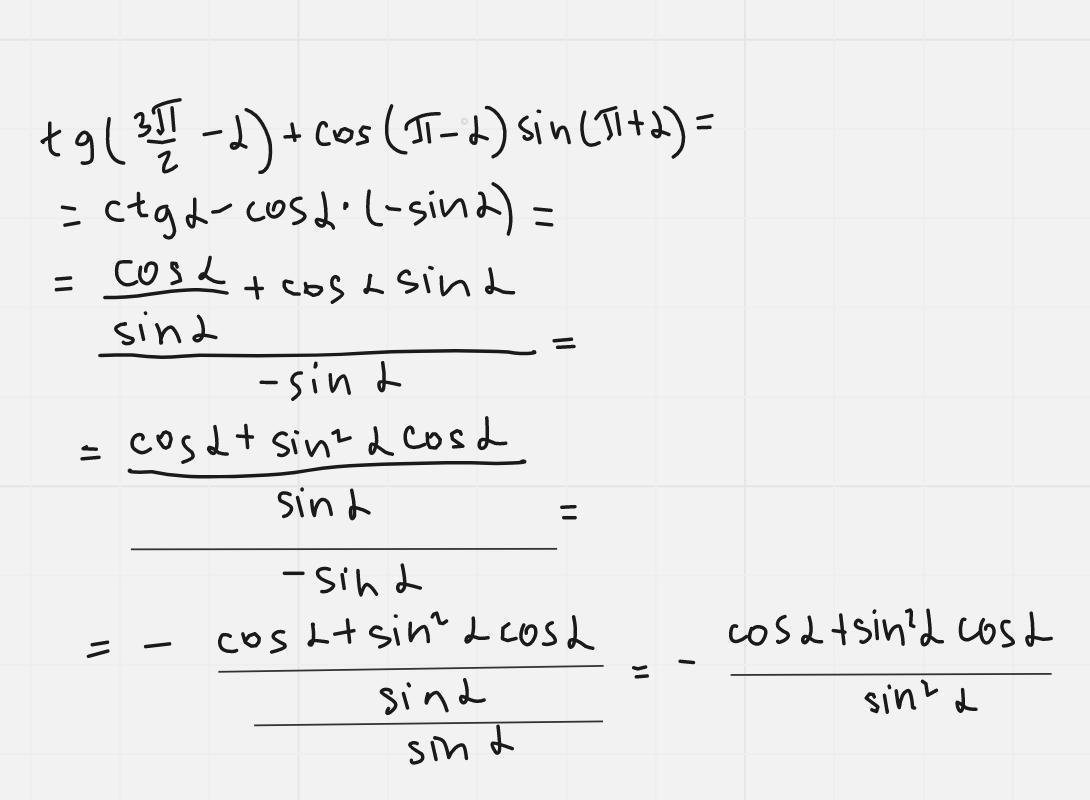 tg(3π/2 - α) + cos(π - α) sin(π + α) =
= ctg α - cos α · (- sin α) =
= cos α / sin α + cos α sin α
/ - sin α =
= cos α + sin² α cos α
/ sin α
/ - sin α =
= - cos α + sin² α cos α / sin α / sin α = - cos α + sin² α cos α / sin² α